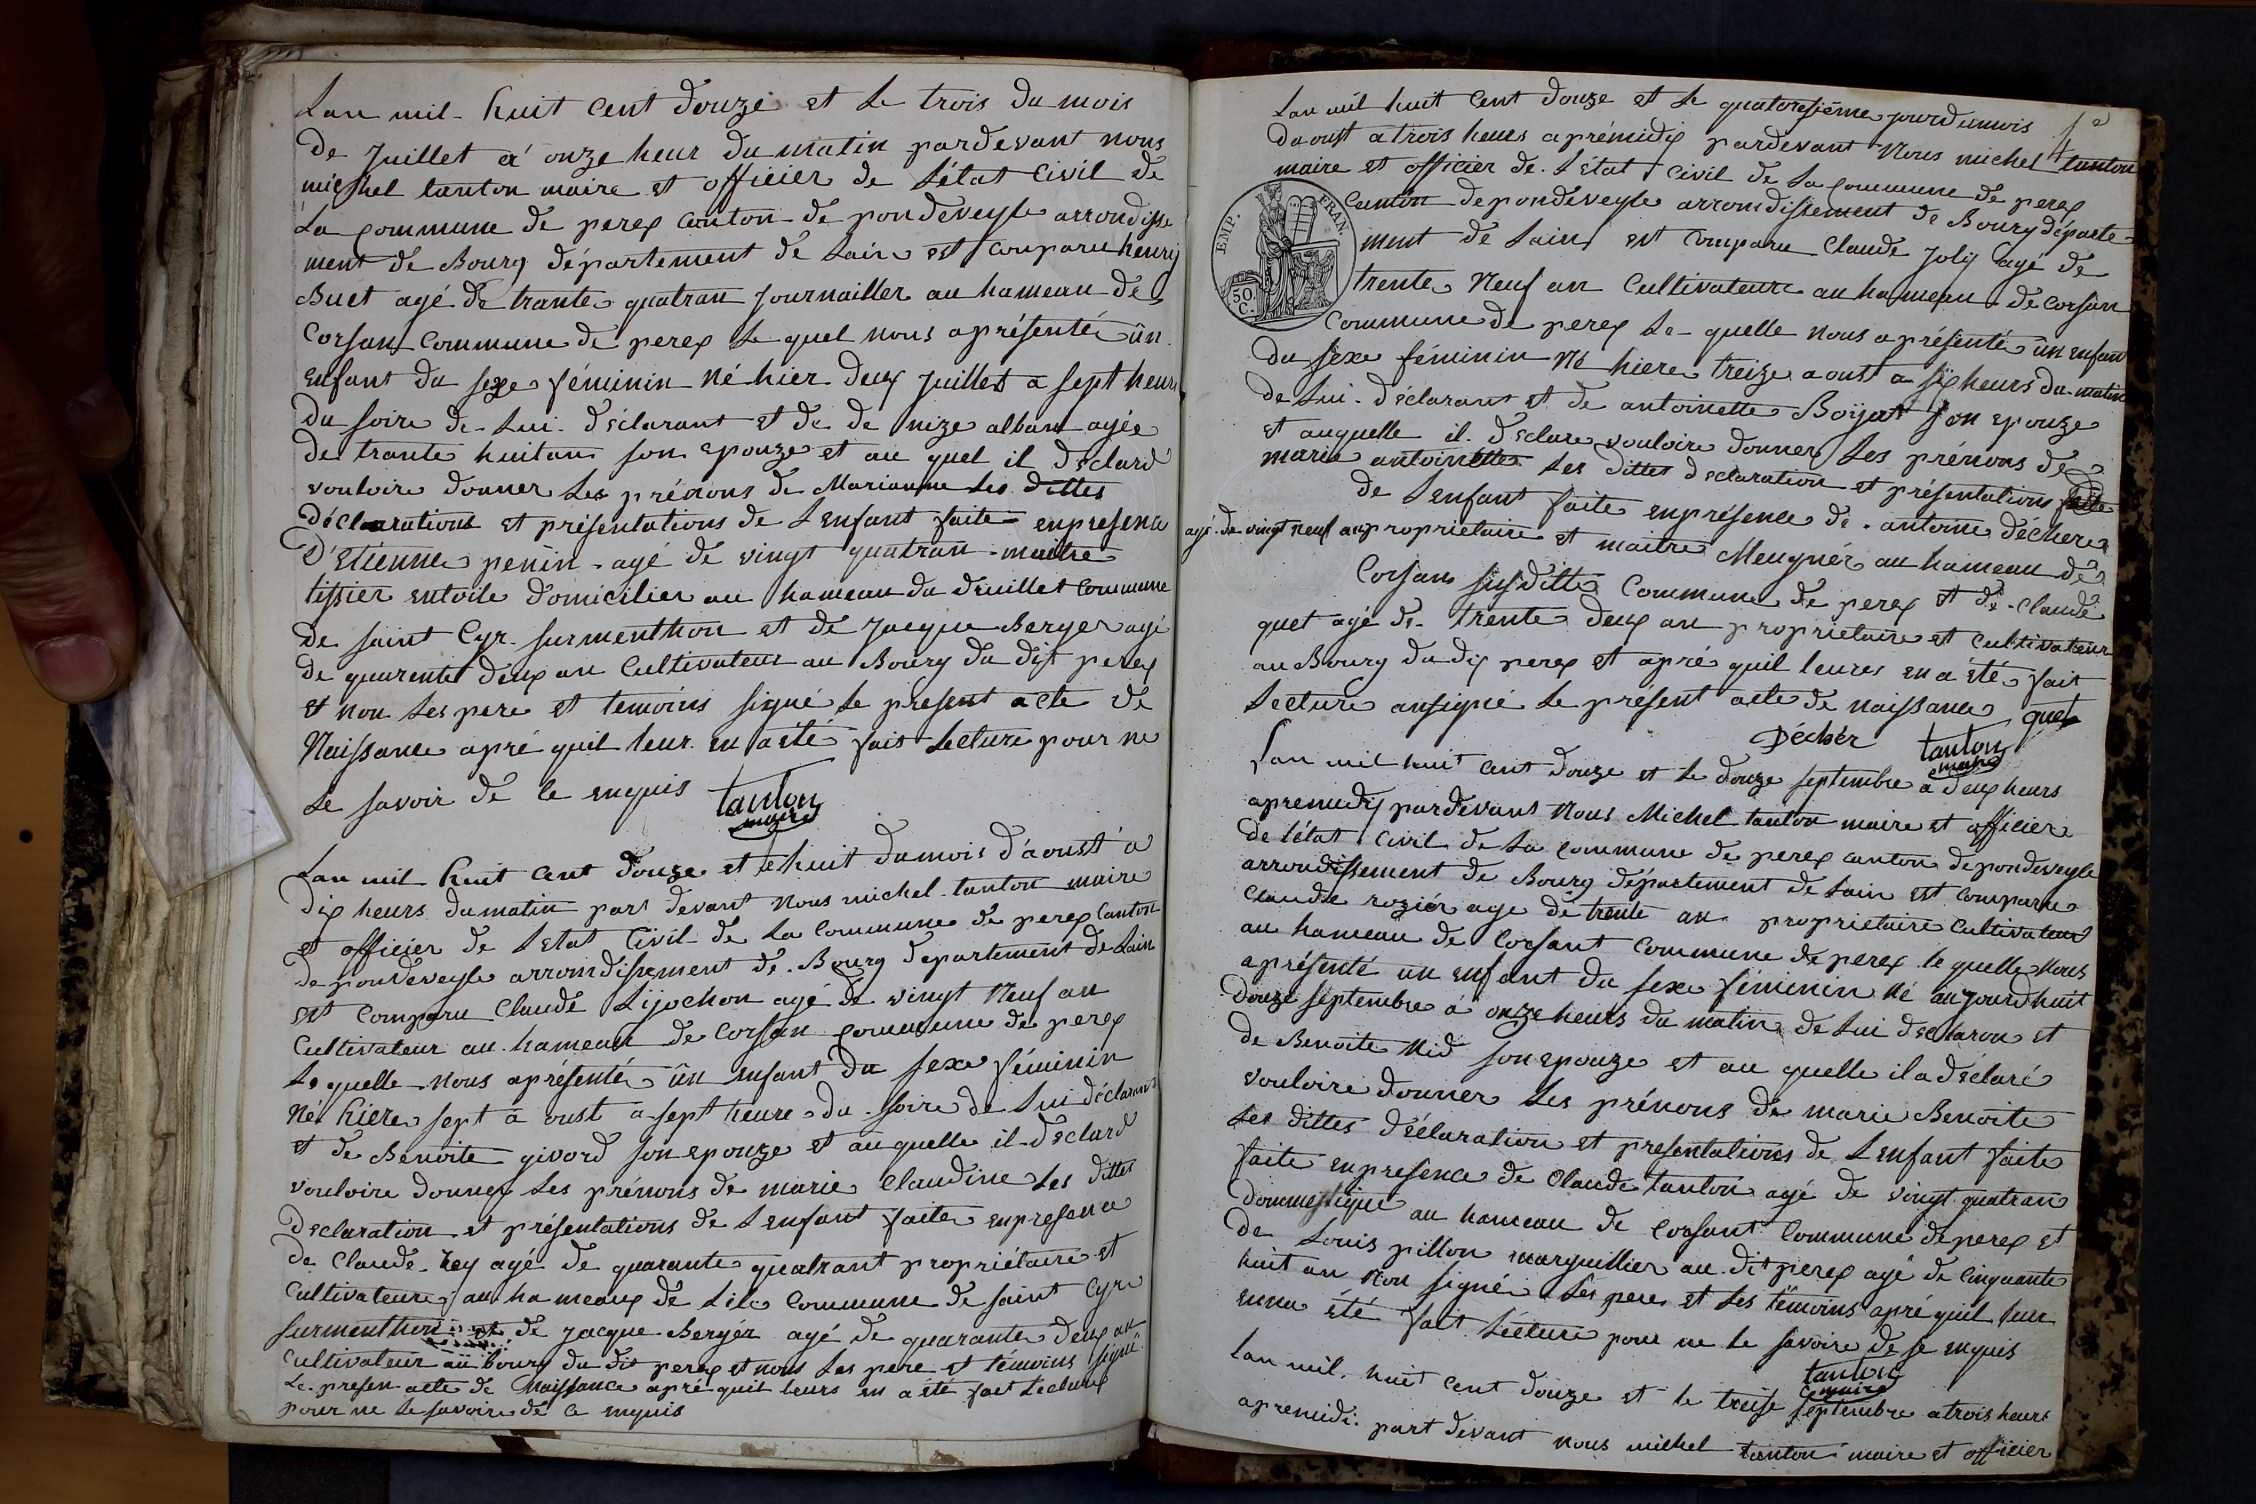 Lan mil huit Cent Douze et Le trois du mois
De Juillet a onze heur Du matin pardevant nous
michel tanton maire et officier de L'état Civil de
La Commune de perex Canton de pondeveyle arrondisse
ment de Bourg département de Lain est Comparu henry
Buet agé de trante quatran Journailler au hameau de
Corsan Commune de perex Le quel nous aprésenté ûn
enfant du sexe féminin Né hier deux Juillet a sept heurs
du soire de Lui déclarant et de de nize alban agée
de trante huitan son epouze et au quel il declard
vouloire donner Les prénons de Marianne Les dittes
déclarations et présentations de Lenfant faite enpresence
D'Etienne penin agé de vingt quatran maitre
tissier entoile domicilier au hameau du deuillet Commune
de saint Cyr surmenthon et de Jacque Berger agé
de quarente deux an Cultivateur au Bourg du dit perex
et non Les pere et temoins signé Le present acte de
Naissance apré quil leur en a été fait Lecture pour ne
Le savoir de Ce enquis tanton
maire
Lan mil huit Cent douze et le huit dumois d'aoust a
dix heurs du matin part devant nous michel tanton maire
et officier de Létat Civil de La Commune de perex Canton
de pondeveyle arromdissement de Bourg departement de Lain
est Comparu Claude Lijochon agé de vingt Neuf an
Cultivateur au hameau de Corsan Commune de perex
Le quelle nous aprésenté ûn enfant du sexe féminin
Né hiere sept aoust a sept heure du soire de Lui déclarant
et de Benoite givord son epouze et au quelle il declard
vouloire donner Les prénons de marie Claudine Les dittes
declaration et présentations de Lenfant faite enpresence
de Claude rey agé de quarante quatrant propriétaire et
Cultivateure au hameaux de Lile Commune de saint Cyre
surmenthon et de Jacque Bergér agé de quarante deux an
Cultivateur au bourg du dit perex et nous Les pere et témoins signé
Le presen acte de Naissance apré quil leurs en a été fait Lecture
pour ne Le savoire de Ce enquis
4e
Lan mil huit Cent douze et Le quatoresiéme jourdumois
daoust atrois heurs aprémidis pardevant Nous michel tanton
maire et officier de L'état Civil de La Commune de perex
Canton depondeveyle arromdissement de Bourg départe-
ment de Lain est Comparu Claude Joly agé de
EMP. FRAN.
50 C.
trente Neuf an Cultivateure au hameau de Corsan
Commune de perex Le quelle nous aprésenté ûn enfant
du sexe féminin Né hiere treize aoust a six heurs du matin
de Lui déclarant et de antoinette Boyat son epouze
et auquelle il declare vouloire donner Les prénons de
marie antoinette Les dittes declaration et présentations faite
de Lenfant faite enprésence de antoine décher
agé de vingt neuf an proprietaire et maitre Meugnér au hameau de
Corsan susditte Commune de perex et de Claude
quet agé de trente deux an proprietaire et Cultivateur
au Bourg du dix perex et apré quil leures en a été fait
Lecture ansigné Le présent acte de naissance quet
Décher tanton
maire
Lan mil huit Cent douze et Le douze septembre a deux heurs
apremidy pardevant Nous Michel tanton maire et officier
de l'état Civil de La Commune de perex Canton depondeveyle
arrondissement de Bourg département de Lain est Comparu
Claude roziér age de trente an proprietaire Cultivateur
au hameau de Corsant Commune de perex le quelle Nous
aprésenté un enfant du sexe féminin né aujourdhuit
douze septembre á onze heurs du matin de Lui declaron et
de Benoite Nid son epouze et au quelle il a déclaré
vouloire donner Les prénons de marie Benoite
Les dittes déclaration et presentations de Lenfant faite
faite enpresence de Claude tanton agé de vingt quatran
dommestique au hameau de Corsant Commune de perex et
de Louis pillon marguillier au dit perex agé de Cinquante
huit an Non signé Les pere et Les témoins apré quil leur
enna été fait Lécture pour ne le savoire de se enquis
tanton
maire
Lan mil huit cent douze et le treise septembre atrois heurs
apremidi part devant nous michel tanton maire et officier